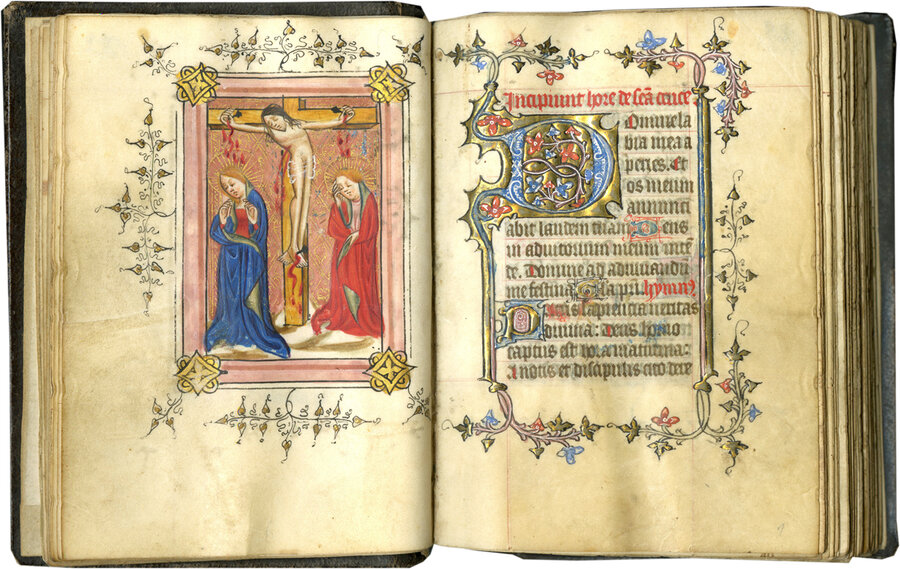 Incipiunt hore de scā cruce
Domine la
bia mea a
peries. Et
os meum
annunci
abit laudem tuam Deus
in adiutorium meum intēn
de. Domine ad adiuuandū
me festina Gła pr̄i. hymn9
Patris sapientia ueritas
diuina: deus homo
captus est hora matutina:
A notis et discipulis cito dere